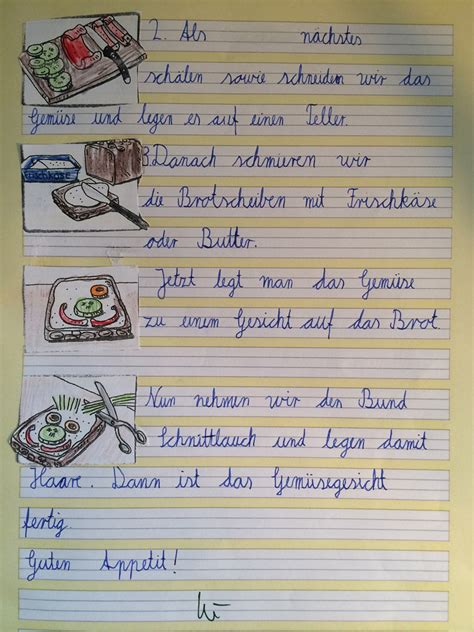 2. Als nächstes
schälen sowie schneiden wir das
Gemüse und legen es auf einen Teller.
3. Danach schmieren wir
die Brotscheiben mit Frischkäse
oder Butter.
Jetzt legt man das Gemüse
zu einem Gesicht auf das Brot.
Nun nehmen wir den Bund
Schnittlauch und legen damit
Haare. Dann ist das Gemüsegesicht
fertig.
Guten Appetit!